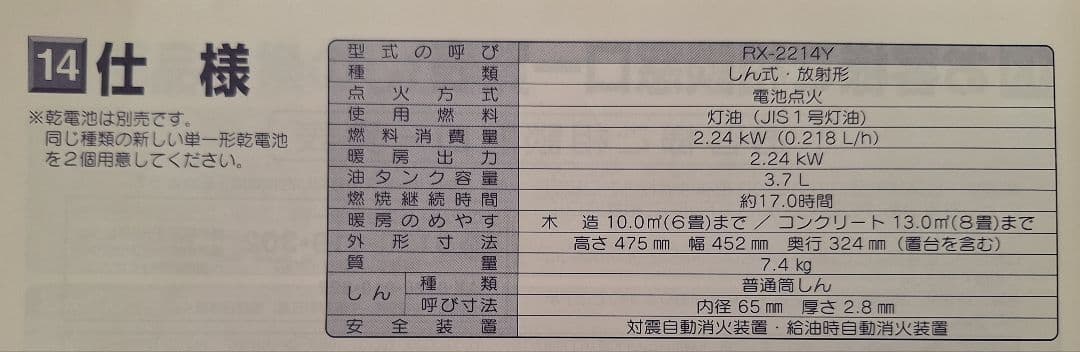 14 仕様
※乾電池は別売です。
同じ種類の新しい単一形乾電池
を2個用意してください。
型式の呼び RX-2214Y
種類 しん式・放射形
点火方式 電池点火
使用燃料 灯油（JIS1号灯油）
燃料消費量 2.24 kW（0.218 L/h）
暖房出力 2.24 kW
油タンク容量 3.7 L
燃焼継続時間 約17.0時間
暖房のめやす 木造 10.0㎡(6畳)まで ／ コンクリート 13.0㎡(8畳)まで
外形寸法 高さ 475 ㎜ 幅 452 ㎜ 奥行 324 ㎜（置台を含む）
質量 7.4 kg
しん 種類 普通筒しん
呼び寸法 内径 65 ㎜ 厚さ 2.8 ㎜
安全装置 対震自動消火装置・給油時自動消火装置